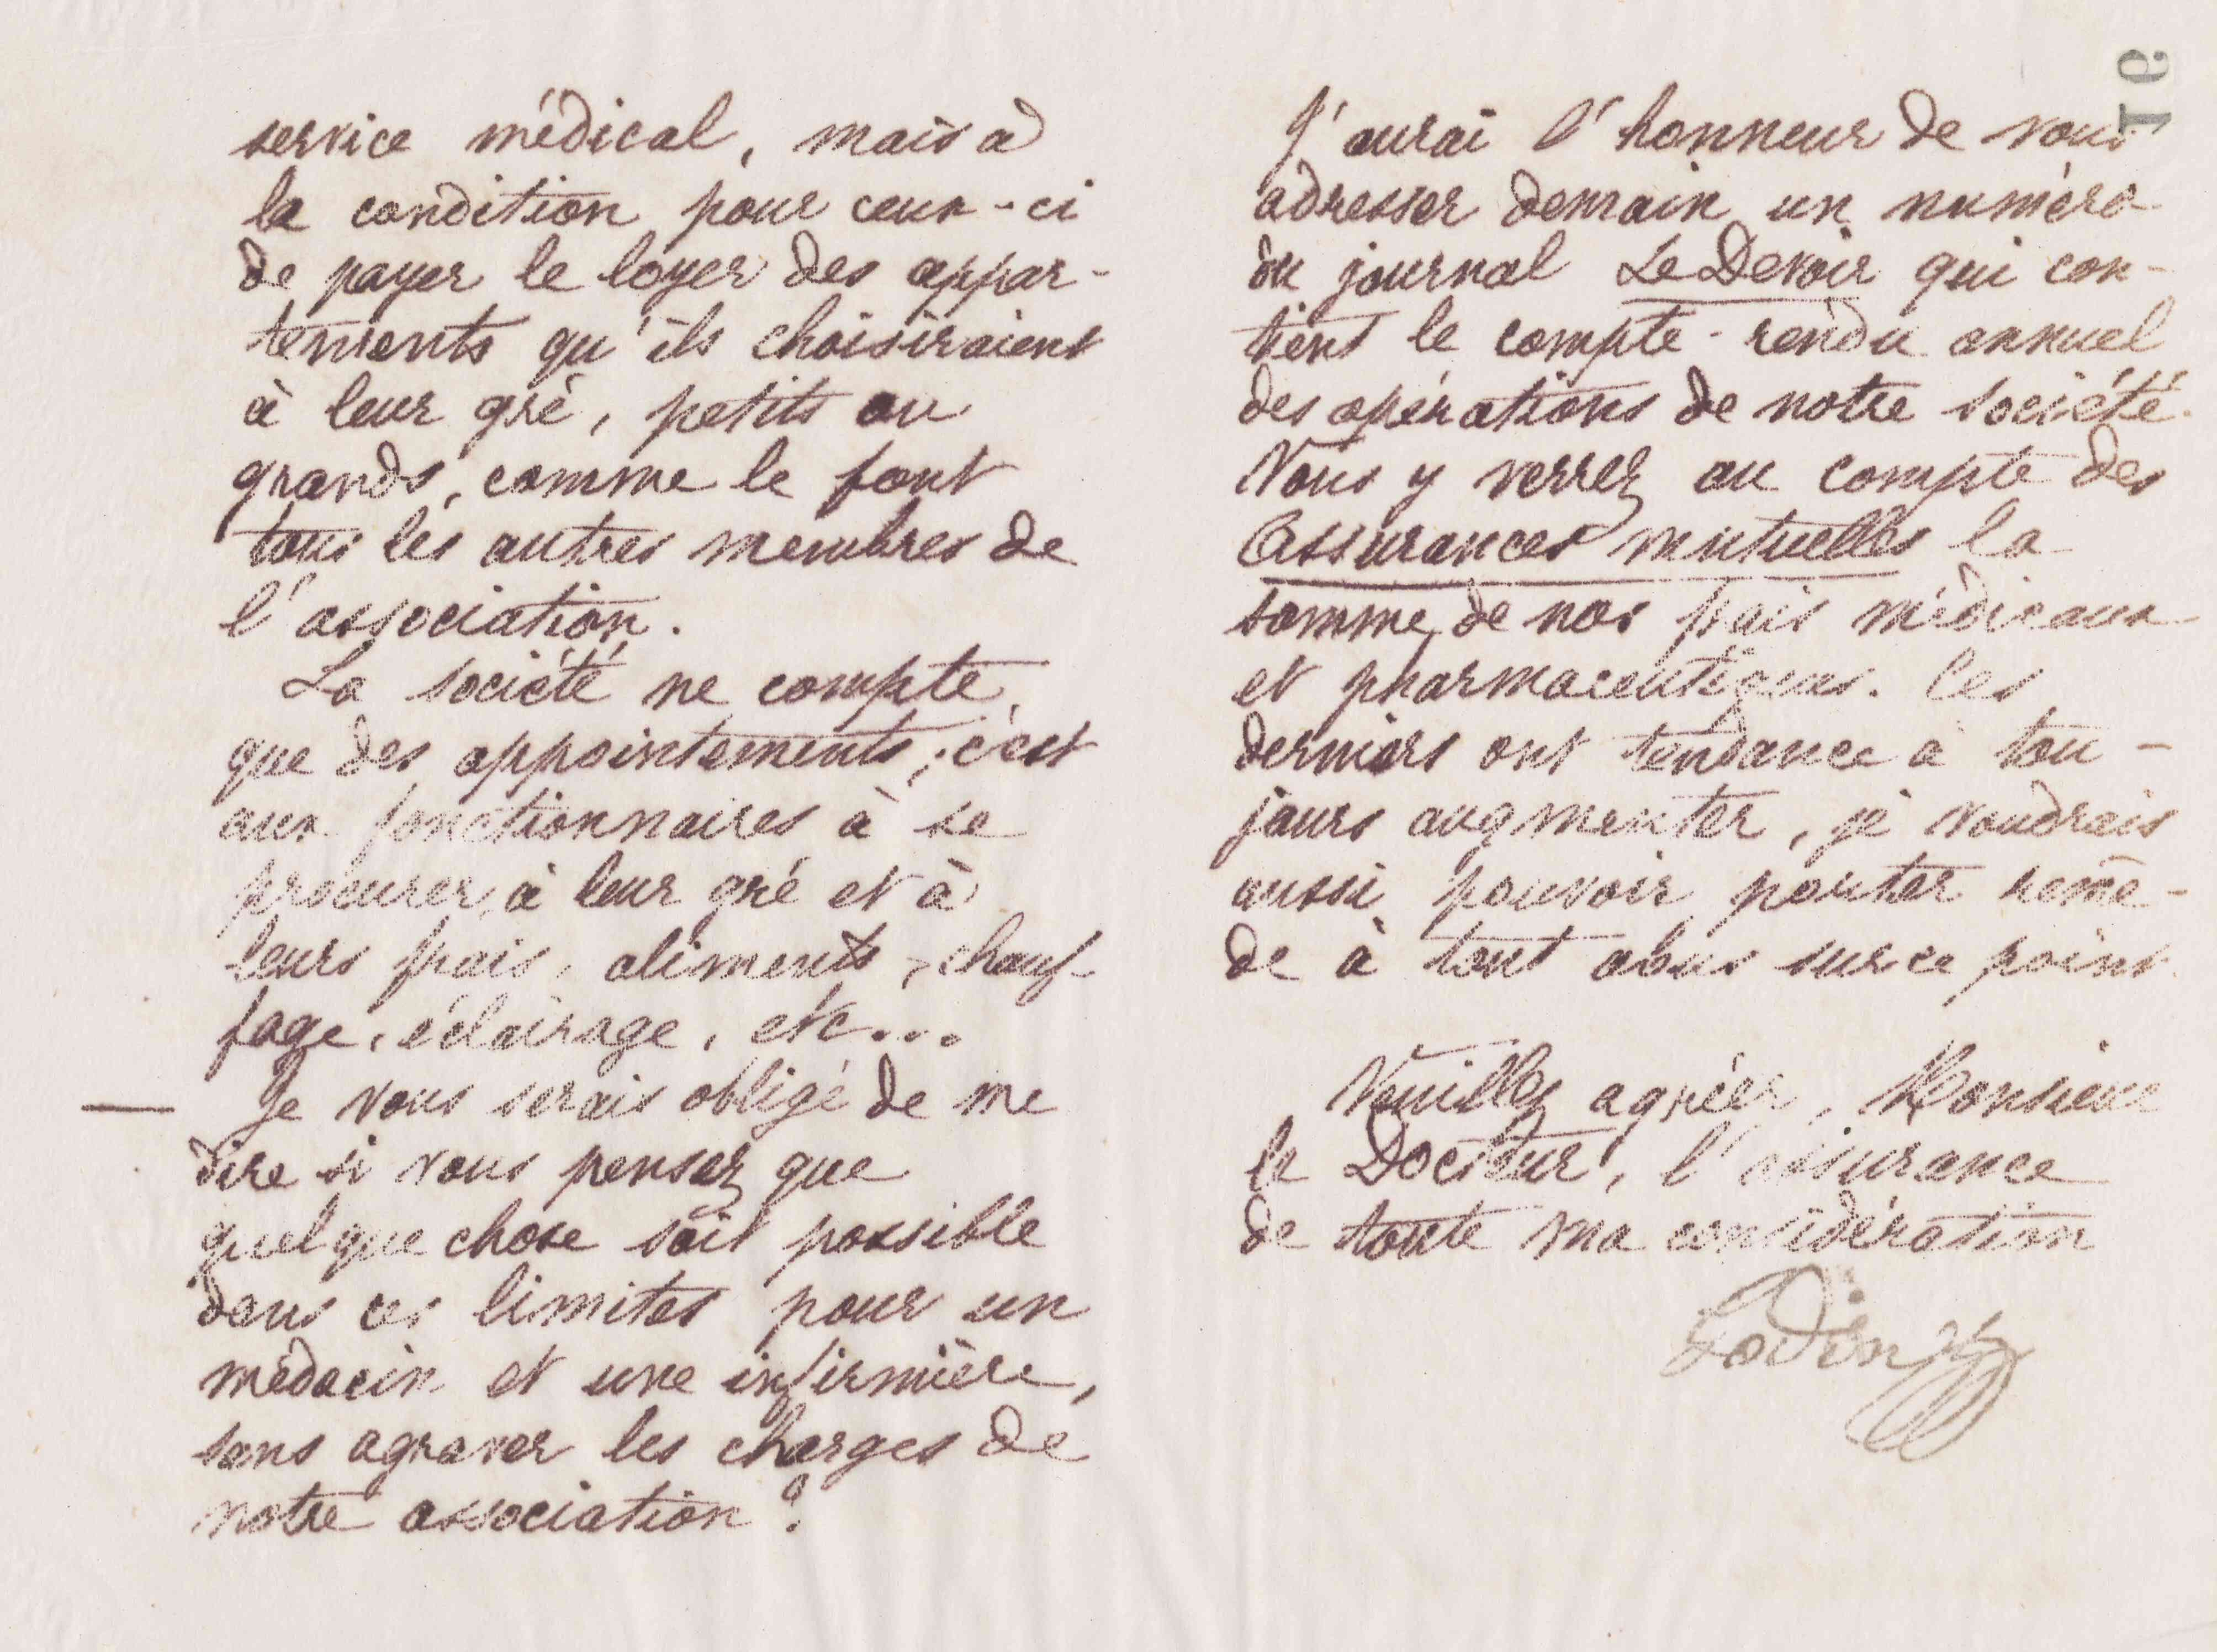 service médical, mais à
la condition pour ceux-ci
de payer le loyer des appar-
tements qu'ils choisiraient
à leur gré, petits ou
grands, comme le font
tous les autres membres de
l'association.
La société ne compte
que des appointements ; c'est
aux fonctionnaires à se
procurer, à leur gré et à
leurs frais, aliments, chauf-
fage, éclairage, etc...
— Je vous serais obligé de me
dire si vous pensez que
quelque chose soit possible
dans ces limites pour un
médecin et une infirmière,
sans agraver les charges de
notre association ?
91
J'aurai l'honneur de vous
adresser demain un numéro
du journal Le Devoir qui con-
tient le compte-rendu annuel
des opérations de notre société.
Vous y verrez au compte des
Assurances mutuelles la
somme de nos frais médicaux
et pharmaceutiques. Ces
derniers ont tendance à tou-
jours augmenter, je voudrais
aussi pouvoir porter remè-
de à tout abus sur ce point.
Veuillez agréer, Monsieur
le Docteur, l'assurance
de toute ma considération
Godin